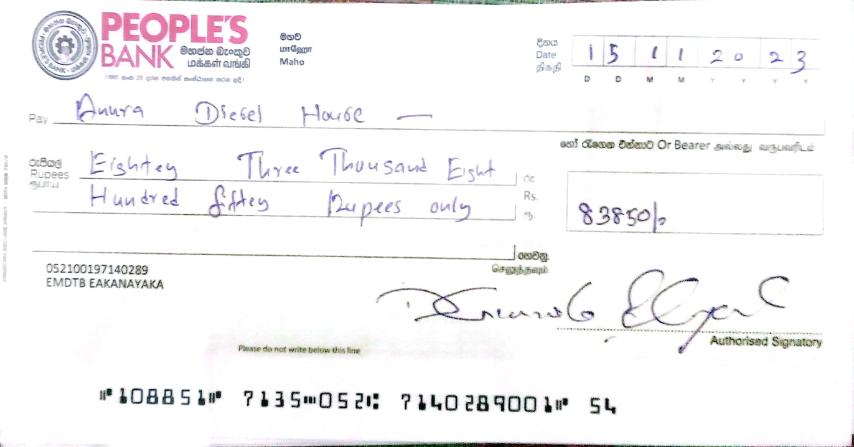 PEOPLE'S
BANK මහජන බැංකුව
மக்கள் வங்கி
PEOPLE'S BANK
මහව
மாஹோ
Maho
දිනය
Date
திகதி
15 11 2023
D D M M Y Y Y Y
Pay Anura Diesel House —
හෝ රැගෙන එන්නාට Or Bearer அல்லது வருபவரிடம்
රුපියල්
Rupees
ரூபாய்
Eightey Three Thousand Eight
Hundred fiftey Rupees only
රු
Rs.
ரூ
83850/-
ගෙවනු.
செலுத்தவும்
052100197140289
EMDTB EAKANAYAKA
Authorised Signatory
Please do not write below this line
⑈108851⑈ 7135⑉052⑆ 7140289001⑈ 54